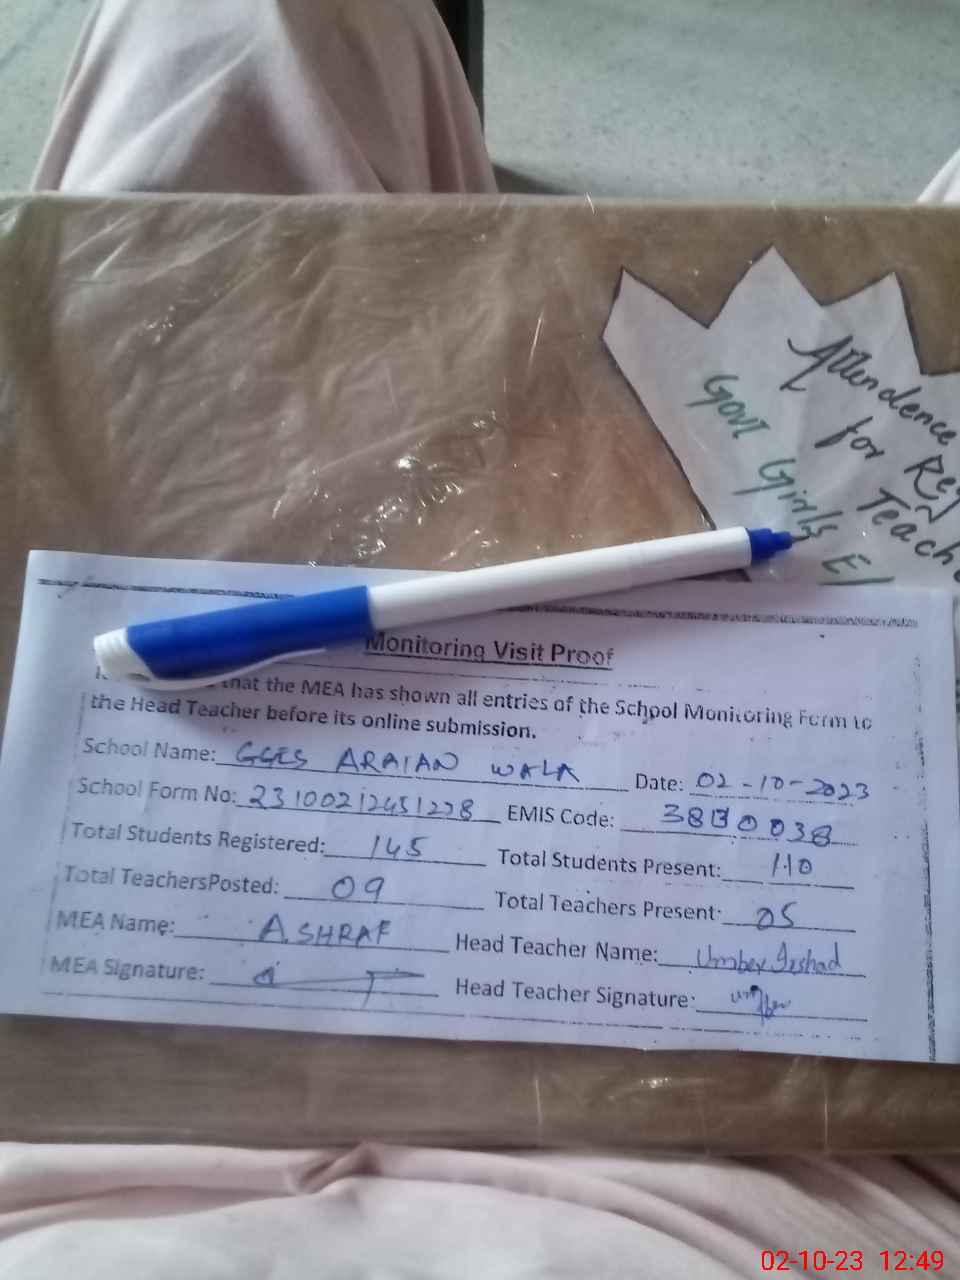 Attendence Reg
for Teache
Govt Girls El
Monitoring Visit Proof
that the MEA has shown all entries of the School Monitoring Form to
the Head Teacher before its online submission.
School Name: GGES ARAIAN WALA Date: 02-10-2023
School Form No: EMIS Code:
Total Students Registered: 145 Total Students Present: 110
Total TeachersPosted: 09 Total Teachers Present: 05
MEA Name: ASHRAF Head Teacher Name: Umber Irshad
MEA Signature: Head Teacher Signature:
02-10-23 12:49